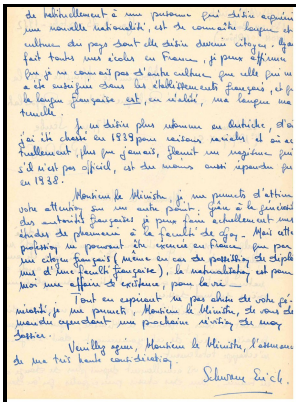 de habituellement à une personne qui désire acquérir
une nouvelle nationalité, est de connaître langue et
culture du pays dont elle désire devenir citoyen. Ayant
fait toutes mes écoles en France, je peux affirmer
que je ne connais pas d'autre culture que celle qui m'
a été enseignée dans les établissements français, et que
la langue française est, en réalité, ma langue ma-
ternelle.
Je ne désire plus retourner en Autriche, d'où
j'ai été chassé en 1939 pour raisons raciales et où ac-
tuellement, plus que jamais, fleurit un nazisme qui
s'il n'est pas officiel, est du moins aussi répandu que
en 1938.
Monsieur le Ministre, je me permets d'attirer
votre attention sur un autre point. Grâce à la générosité
des autorités françaises je peux faire actuellement mes
études de pharmacie à la faculté de Mais cette
profession ne pouvant être exercée en France que par
un citoyen français (même en cas de possession de diplô-
mes d'une faculté française), la naturalisation est pour
moi une affaire d'existence, pour la vie —
Tout en espérant ne pas abuser de votre gé-
nérosité, je me permets, Monsieur le Ministre, de vous de-
mander cependant une prochaine révision de mon
dossier.
Veuillez agréer, Monsieur le Ministre, l'assurance
de ma très haute considération.
Schwam Erich.